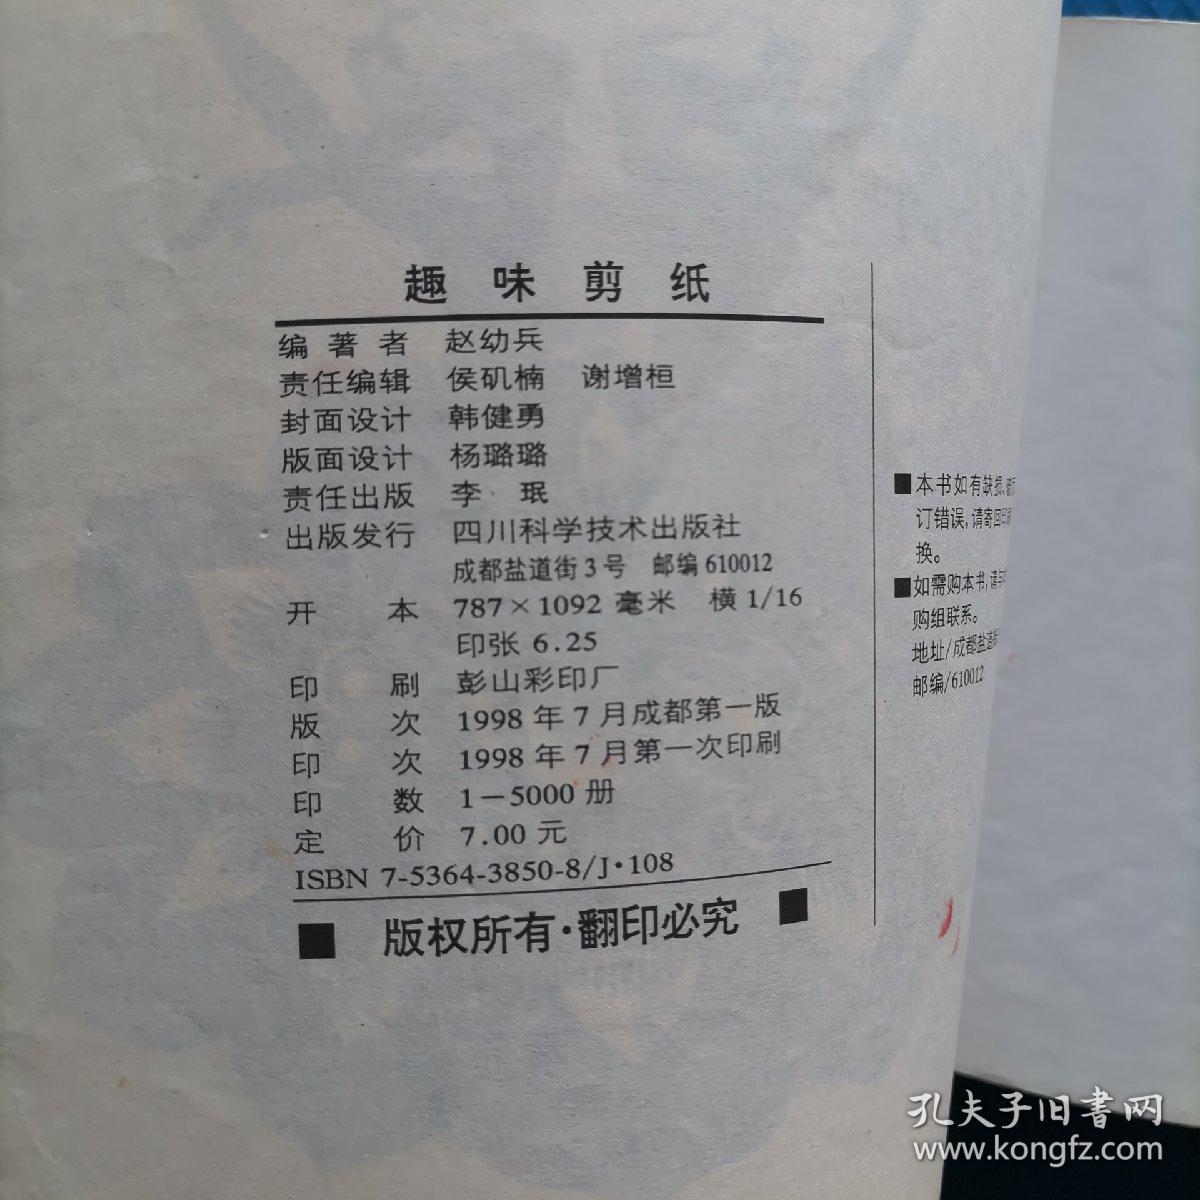 趣味剪纸
编著者 赵幼兵
责任编辑 侯矶楠 谢增桓
封面设计 韩健勇
版面设计 杨璐璐
责任出版 李 珉
出版发行 四川科学技术出版社
成都盐道街3号 邮编610012
开 本 787×1092 毫米 横1/16
印张 6.25
印 刷 彭山彩印厂
版 次 1998年7月成都第一版
印 次 1998年7月第一次印刷
印 数 1－5000册
定 价 7.00元
ISBN 7-5364-3850-8/J·108
■ 版权所有·翻印必究 ■
■本书如有缺损、
订错误,请寄回印
换。
■如需购本书,请
购组联系。
地址/成都盐道
邮编/610012
孔夫子旧書网
www.kongfz.com